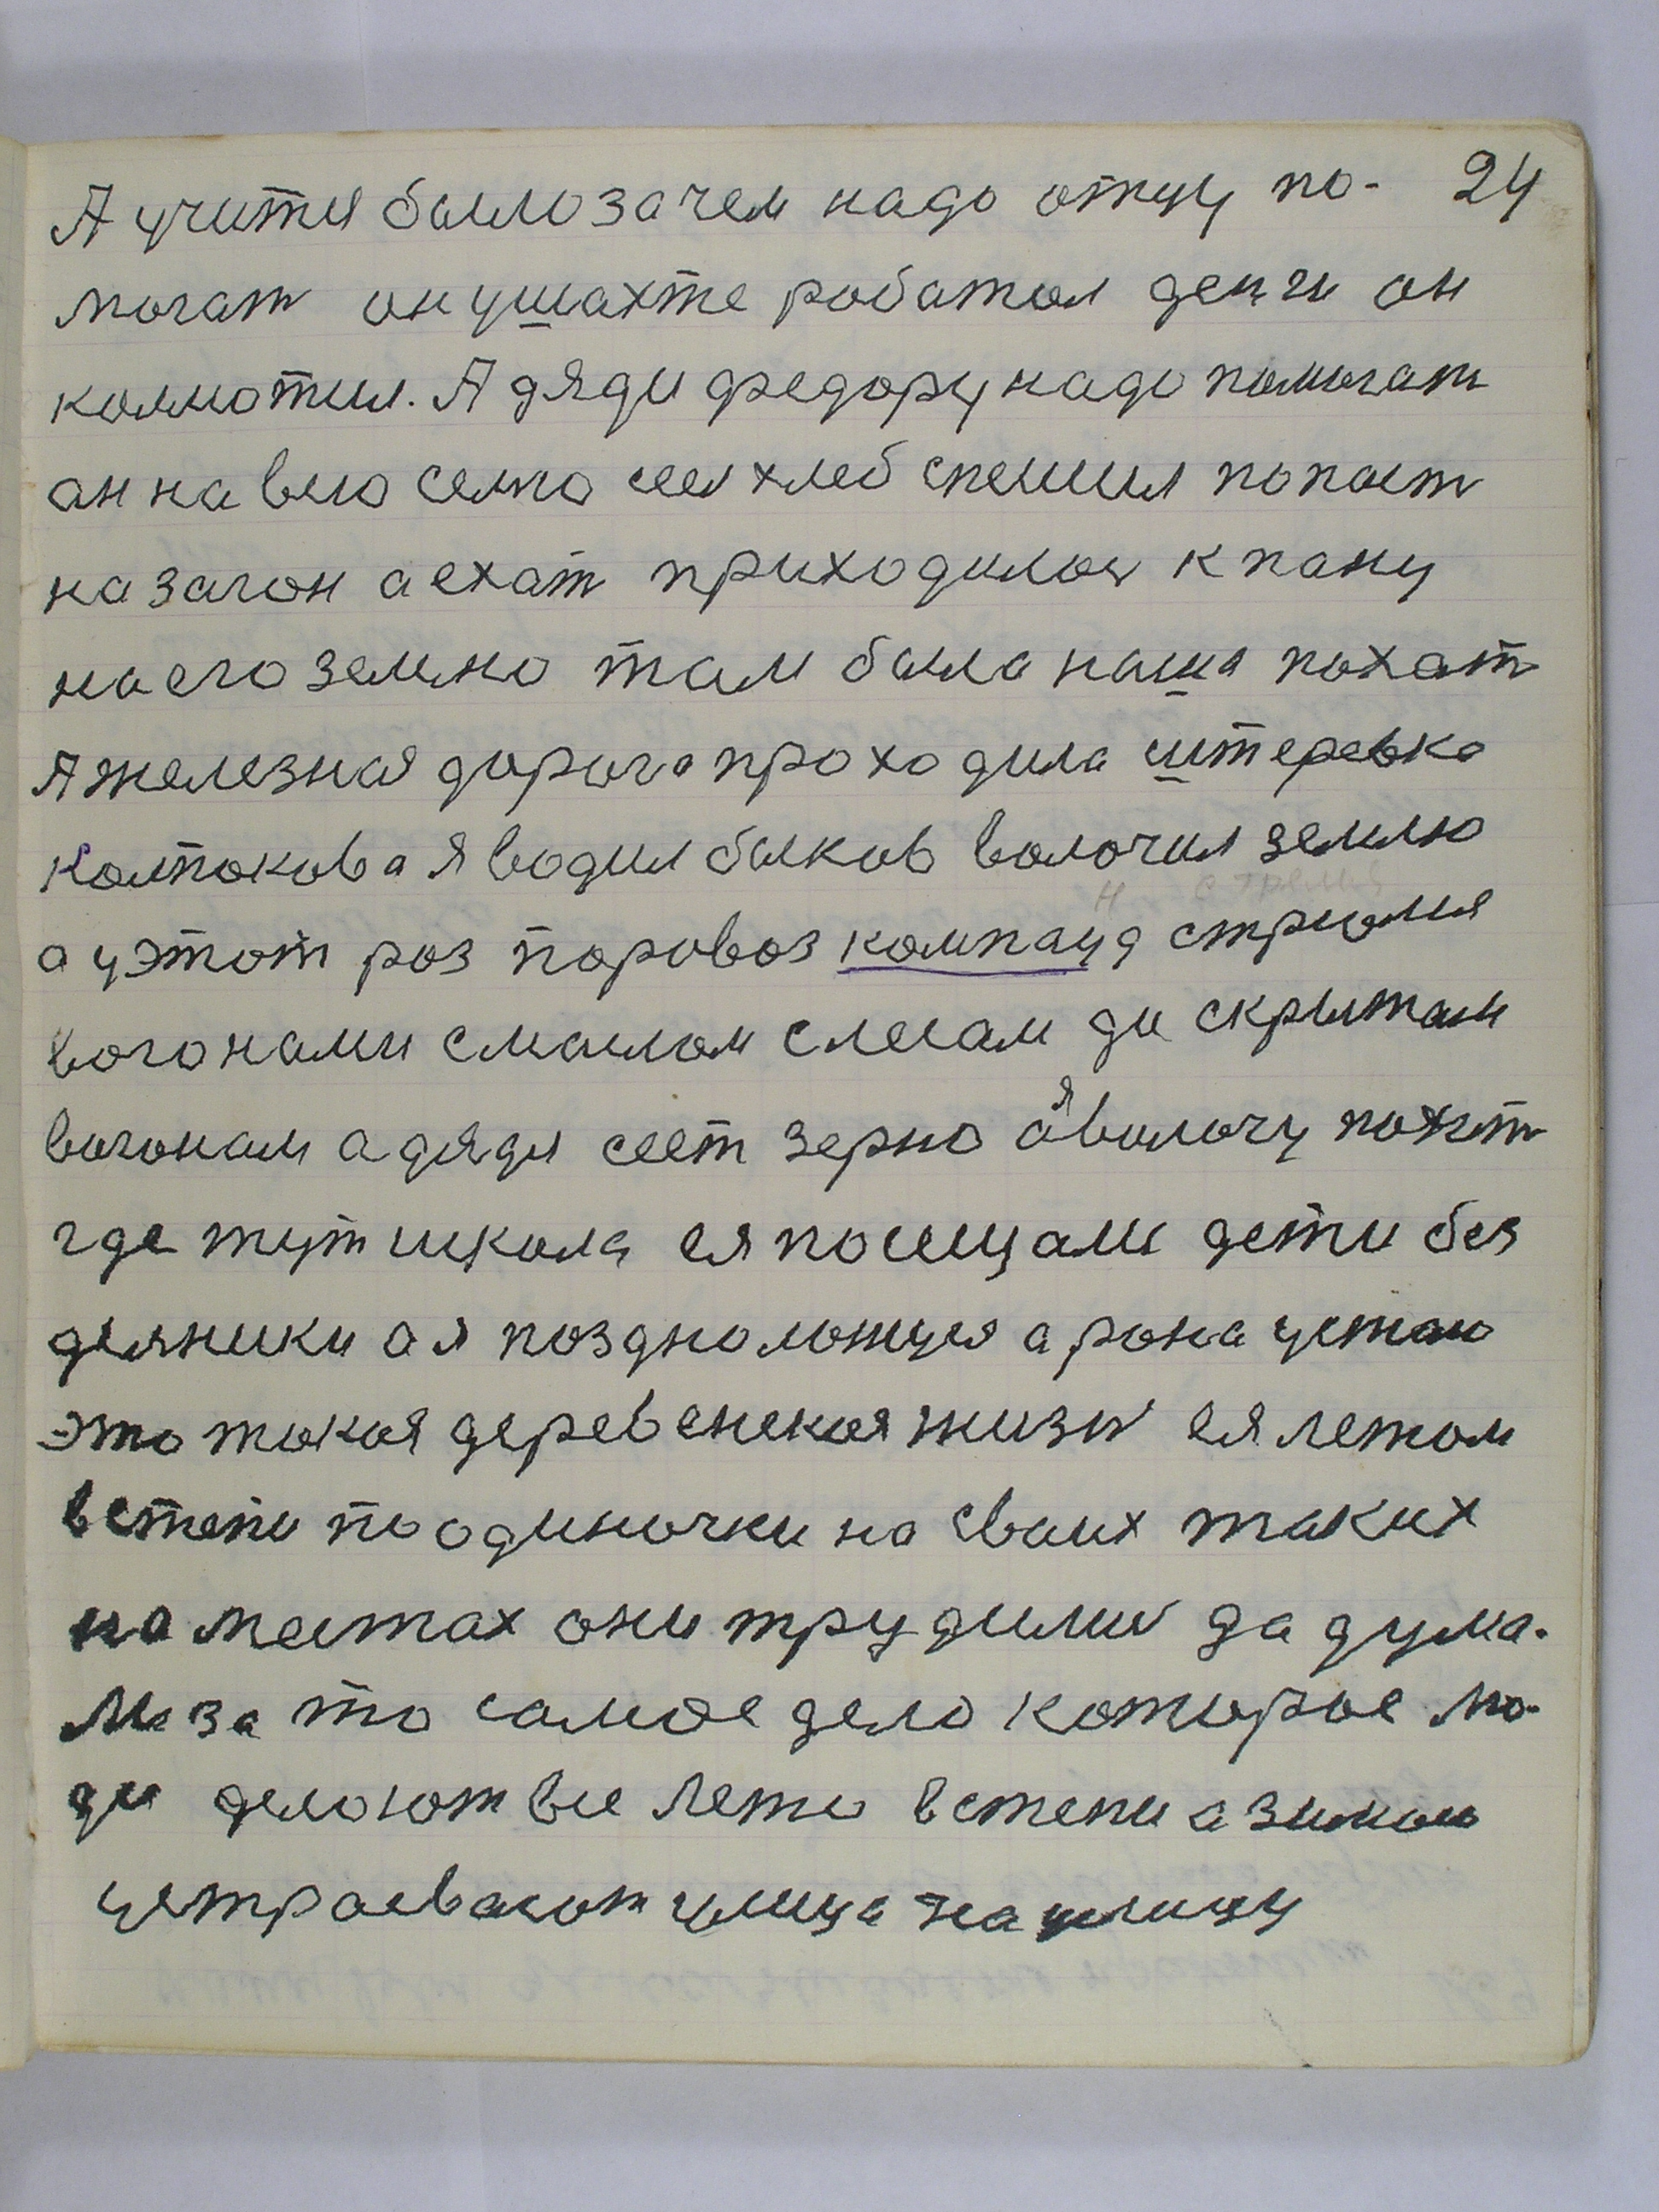 А учится было зачем надо отцу по- 24
могат он ушахте роботал денги он
колмотил. А дяди федору надо помогат
он на вою семю сеел хлеб спешил попаст
на загон а ехат приходилось к пану
на его землю там была наша пахат
А железная дорога проходила штеревка
Колпокова я водил быков волочил землю
н стремя
а уэтот роз поровоз компауд стриомя
вогонами смаслом слесам ди скрытам
вогонам а дядя сеет зерно а я волочу пахат
где тут школа ея посещали дети без
делники а я поздноложуся а рона устаю
это токая деревенская жизн ея летом
встепи по одиночки на своих таких
на местах они трудилис да дума-
ли за то самое дело которые лю-
ди делоют все лето встепи а зимою
устраевают улица на улицу